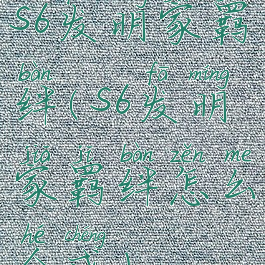 S6发明家羁
bàn fā míng
绊(S6发明
jiā jī bàn zěn me
家羁绊怎么
hé chéng
合成)